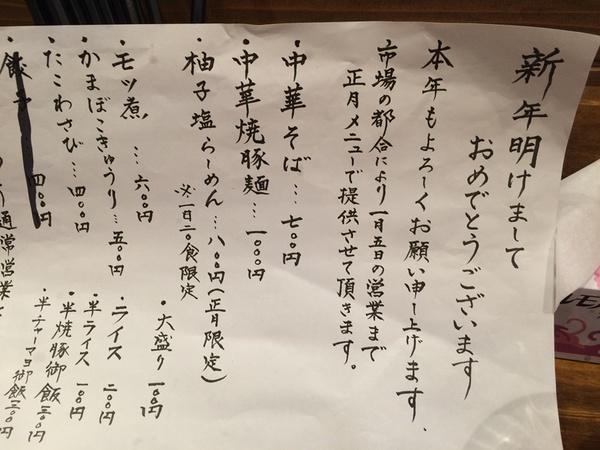 新年明けまして
おめでとうございます
本年もよろしくお願い申し上げます.
市場の都合により一月五日の営業まで
正月メニューで提供させて頂きます。
・中華そば…七〇〇円
・中華焼豚麺…一〇〇〇円
・柚子塩らーめん…八〇〇円(正月限定)
※一日二〇食限定
・大盛り 一〇〇円
・モツ煮…六〇〇円
・ライス 二〇〇円
・かまぼこきゅうり…五〇〇円
・半ライス 一〇〇円
・たこわさび…四〇〇円
・半焼豚御飯 三〇〇円
・餃子 四〇〇円
・半チャーマヨ御飯 三〇〇円
通常営業